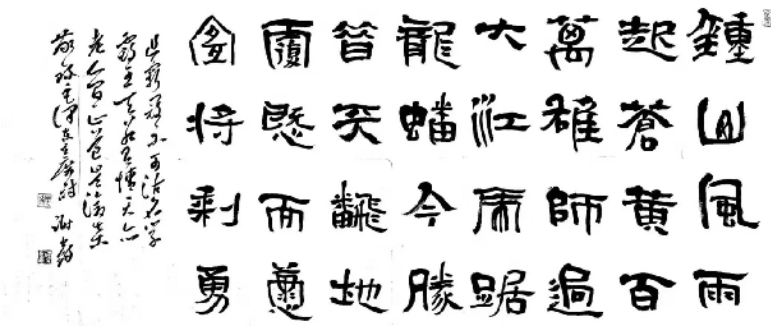 鍾山風雨
起蒼黃百
萬雄師過
大江虎踞
龍蟠今勝
昔天飜地
覆慨而慷
宜將剩勇
追窮寇不可沽名學
霸王天若有情天亦
老人間正道是滄桑
敬錄毛澤東主席詩